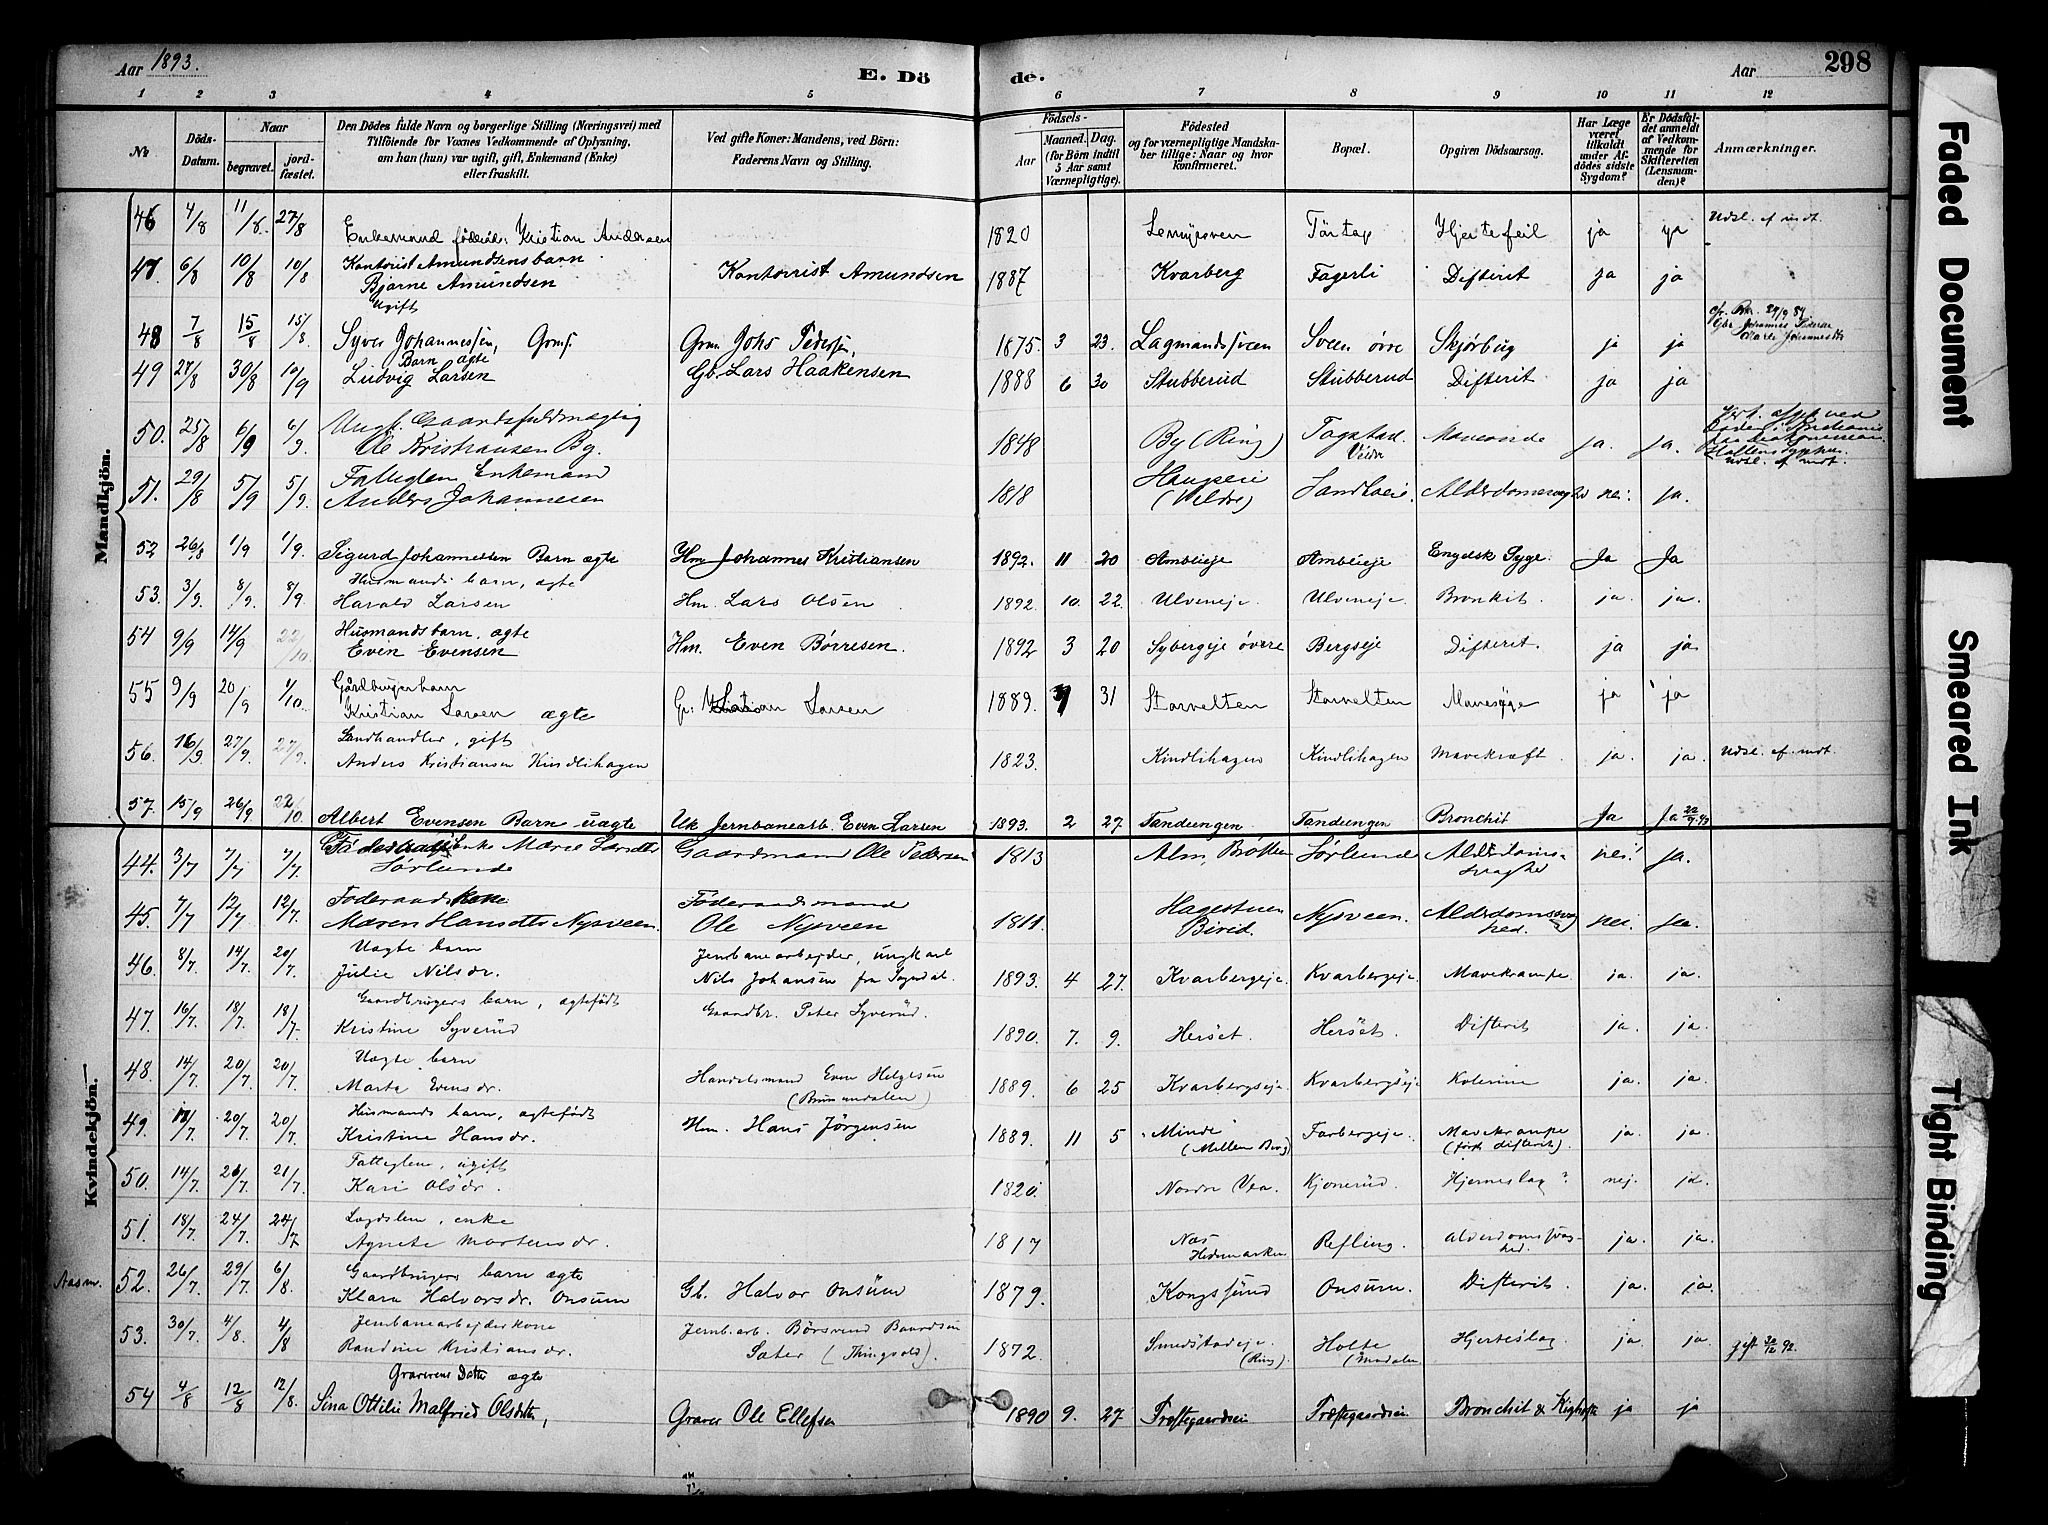 Aar 1893. E. Dö de. Aar 298
1 2 3 4 5 6 7 8 9 10 11 12
No Döds-Datum. Naar begravet. jordfæstet. Den Dödes fulde Navn og borgerlige Stilling (Næringsvei) med Tilföiende for Voxnes Vedkommende af Oplysning, om han (hun) var ugift, gift, Enkemand (Enke) eller fraskilt. Ved gifte Koner: Mandens, ved Börn: Faderens Navn og Stilling. Födsels- Aar Maaned. Dag. (for Börn indtil 5 Aar samt Værnepligtige). Födested og for værnepligtige Mandskaber tillige: Naar og hvor konfirmeret. Bopæl. Opgiven Dödsaarsag. Har Læge været tilkaldt under Afdödes sidste Sygdom? Er Dödsfaldet anmeldt af Vedkommende for Skifteretten (Lensmanden)? Anmærkninger.
Mandkjön.
46 4/8 11/8. 27/8 Enkemand föderåd: Kristian Andersen 1820 Hjertefeil ja ja Udsl. af mdt.
47. 6/8 10/8 10/8 Kontorist Amundsens barn
Bjarne Amundsen Kontorrist Amundsen 1887 Kvarberg Fagerli Difterit ja ja
Ugift
48 7/8 15/8 15/8 Syver Johannessen, Grmf. Grm. Johs Pedersen, 1875. 3 23. Lagmandssveen Sveen övre Skjörbug ja ja
49 27/8 30/8 10/9 Barn ægte
Ludvig Larsen Gb. Lars Haakensen 1888 6 30 Stubberud Stubberud Difterit ja ja
50. 25/8 6/9 6/9 Ungk. Gaardsfuldmægtig
Ole Kristiansen By. 1848 By (Ring) ja. ja. Udsl. af mdt.
51. 29/8 5/9 5/9 Fattiglem Enkemand
Anders Johannesen 1818 nei. ja.
52 26/8 1/9 1/9. Sigurd Johannesen Barn ægte Hm Johannes Kristiansen 1892. 11 20 Amblieje Amblieje Engelsk Syge. Ja Ja
53. 3/9. 8/9. 8/9. Husmands barn, ægte
Harald Larsen Hm. Lars Olsen 1892. 10. 22. Ulveneje. Ulveneje. Bronkit. ja. ja.
54 9/9 14/9 22/10. Husmandsbarn, ægte
Even Evensen Hm. Even Börresen. 1892 3 20 Sybergeje övre Bergseje Difterit. ja ja.
55 9/9 20/9 1/10. Gårdbrugerbarn
Kristian Larsen ægte Larsen 1889. 31 Storvelten Storvelten Mavesyge. ja ja
56. 16/9 27/9. 27/9. Landhandler, gift
Anders Kristiansen Kindlihagen 1823. Kindlihagen Kindlihagen Mavekræft. ja. ja. Udsl. af mdt.
57. 15/9 26/9 22/10. Albert Evensen Barn uægte Uk Jernbanearb. Even Larsen 1893. 2 27. Tandeengen Tandeengen Bronchit Ja Ja 22/9 93
Kvindekjön.
44. 3/7 7/7 7/7. Enke Marie Larsdtr
Sörlunde Gaardmand Ole Pedersen 1813 Sörlunde Alderdoms-
svaghed nei! ja.
45. 7/7 12/7 12/7. Föderaadskone
Maren Hansdtr Nysveen. Föderaadsmand
Ole Nysveen 1811. Hagestuen
Birid. Nysveen. nei. ja.
46. 8/7. 14/7. 20/7. Uægte barn
Julie Nilsdr. Jernbanearbejder, ungkarl
Nils Johansen fra Sogndal. 1893. 4 27. Kvarbergeje. Kvarbergeje. Mavekrampe ja. ja.
47. 16/7. 18/7. 18/7. Gaardbrugers barn, ægtefödt
Kristine Syverud Gaardbr. Peter Syverud. 1890. 7. 9. Hersöt. Hersöt. Difterit ja. ja.
48. 14/7. 20/7. 20/7. Uægte barn
Marta Evensdr. Handelsmand Even Helgesen
(Brumundalen) 1889. 6 25 Kvarbergseje. Kvarbergseje Kolerine ja. ja.
49. 17/7. 20/7. 20/7. Husmands barn, ægtefödt
Kristine Hansdr. Hm. Hans Jörgensen 1889. 11 5 "Minde" Farbergeje. Mavekrampe
(först difterit). ja. ja.
50. 14/7. 20/7. 21/7. Fattiglem, ugift
Kari Olsdr. 1820. Nordre Vea. Kjonerud. Hjerneslag? nej. ja.
51. 18/7. 24/7. 24/7 Lægdslem, enke
Agnete Mortensdr. 1817 Næs
Hedemarken Refling. Alderdomssvag-
hed. ja. ja.
52. 26/7. 29/7. 6/8 Gaardbrugers barn ægte
Klara Halvorsdr. Onsum Gb. Halvor Onsum 1879. Kongssund Onsum. Difterit. ja. ja.
53. 30/7. 4/8. 4/8 Jernbanearbejderkone
Randine Kristiansdr. Jernb.arb. Börsvend Baardsen
Sater (Thingvold). 1872. Smedstadeje
(Ring). Holte Hjerteslag. ja. ja gift 30/12 92.
54 4/8 12/8 12/8. Graverens Datter ægte
Sina Ottilie Malfried Olsdtr, Graver Ole Ellefsen 1890 9. 27. Præstegaardseie Præstegaardseie Bronchit & Kighoste ja ja
Faded Document
Smeared Ink
Tight Binding